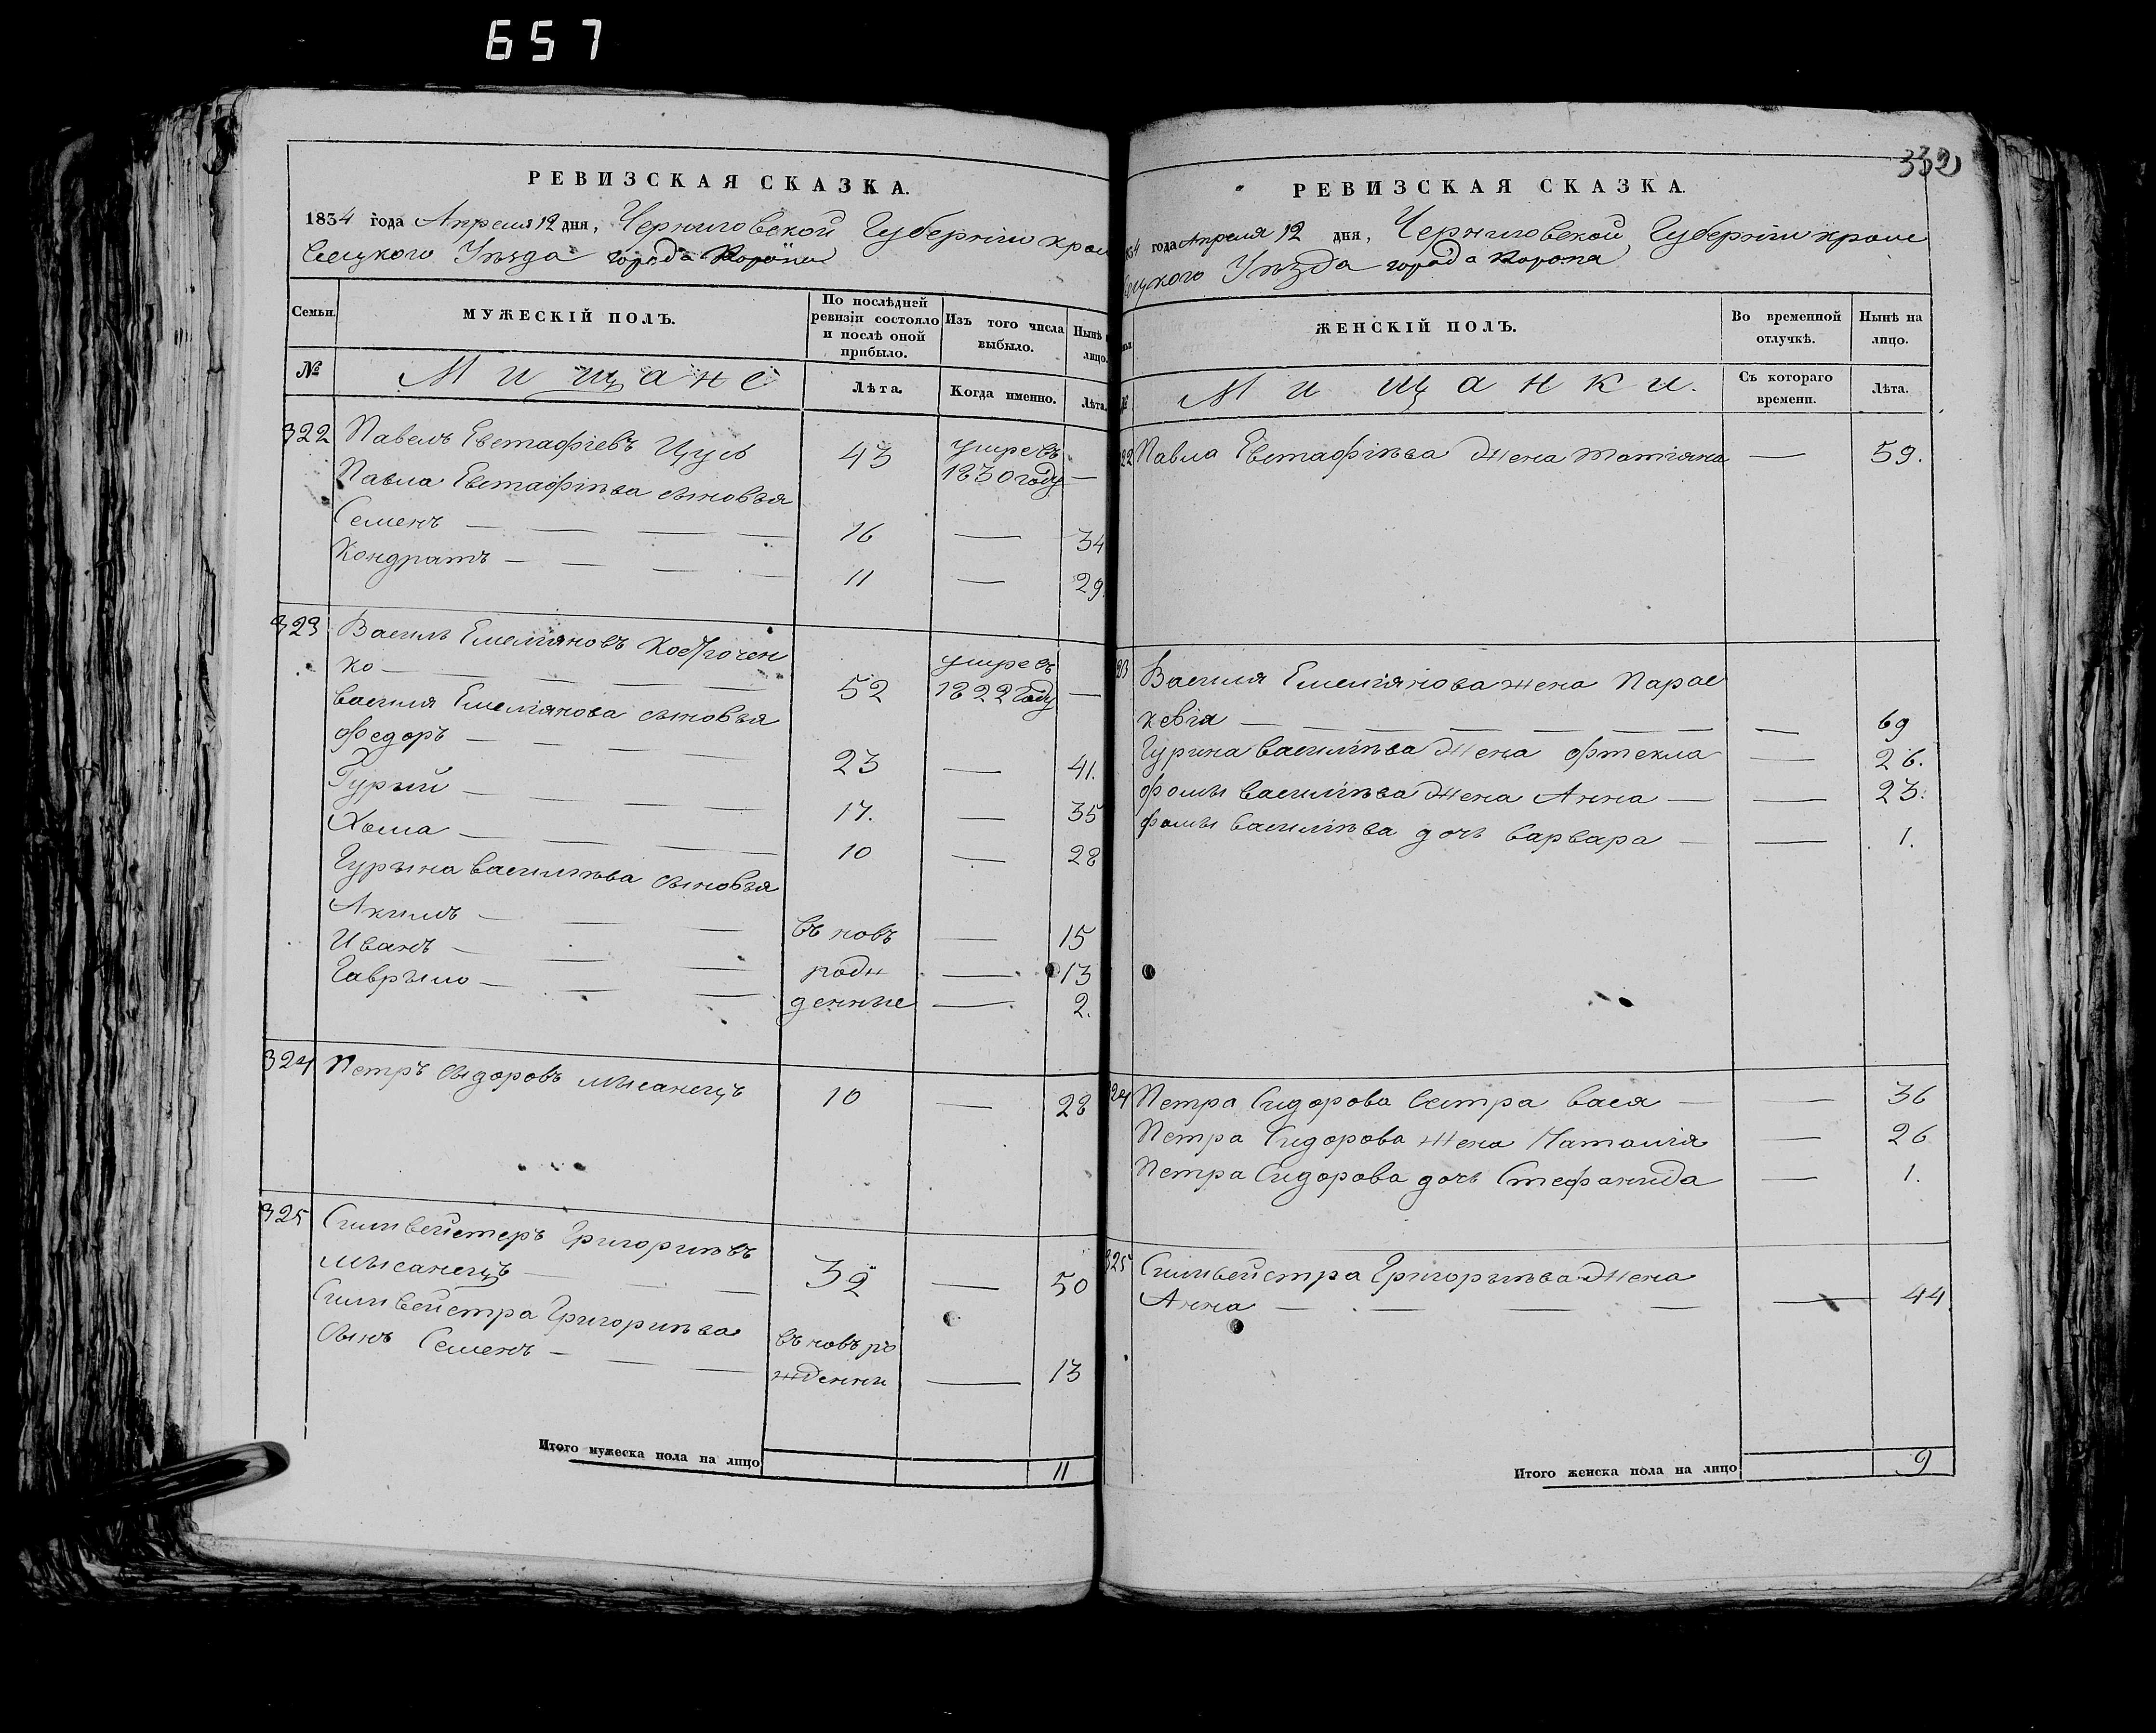 657
РЕВИЗСКАЯ СКАЗКА.
1834 года Апреля 12 дня, Черниговской Губернiи кроле
вецкого Уѣзда города Коропа
Семьи.
МУЖЕСКІЙ ПОЛЪ.
По послѣдней ревизіи состояло и послѣ оной прибыло.
Изъ того числа выбыло.
Нынѣ на лицо.
№
Мищане
Лѣта.
Когда именно.
Лѣта.
322 Павелъ Евстафіевъ Цусь 43 умре въ 1830 году —
Павла Евстафіѣва сыновья
Семенъ — 16 — 34
Кондратъ — 11 — 29.
323 Василь Емелiяновъ
ко — 52 умре въ 1822 году —
Василя Емелiянова сыновья
Федоръ — 23 — 41.
Гурий — 17. — 35
Хома — 10 — 28
Гурына Василiѣва сыновья
Акимъ — въ новъ — 15
Иванъ — родж — 13
Гаврыло — денные — 2.
324 Петръ Сыдоровъ Мысанецъ 10 — 28
325 Силивейстеръ Григориѣвъ
Мысанецъ — 32 — 50
Силивейстра Григориѣва
сынъ Семенъ — въ новъ ро
жденни — 13
Итого мужеска пола на лицо 11
332
РЕВИЗСКАЯ СКАЗКА.
1834 года Апреля 12 дня, Черниговской Губернiи кроле
вецкого Уѣзда города Коропа
ЖЕНСКІЙ ПОЛЪ.
Во временной отлучкѣ.
Нынѣ на лицо.
№
Мищанки.
Съ котораго времени.
Лѣта.
322 Павла Евстафіѣва жена Татiяна — 59.
323 Василя Емелiянова жена Парас
кевiя — 69
Гурина Василiѣва жена Фтекла — 26.
Фомы Василiѣва жена Анна — 23.
Фомы Василiѣва дочь Варвара — 1.
324 Петра Сидорова сестра Вася — 36
Петра Сидорова жена Наталiя — 26
Петра Сидорова дочь Стефанида — 1.
325 Силивейстра Григорыѣва жена
Анна — 44.
Итого женска пола на лицо 9